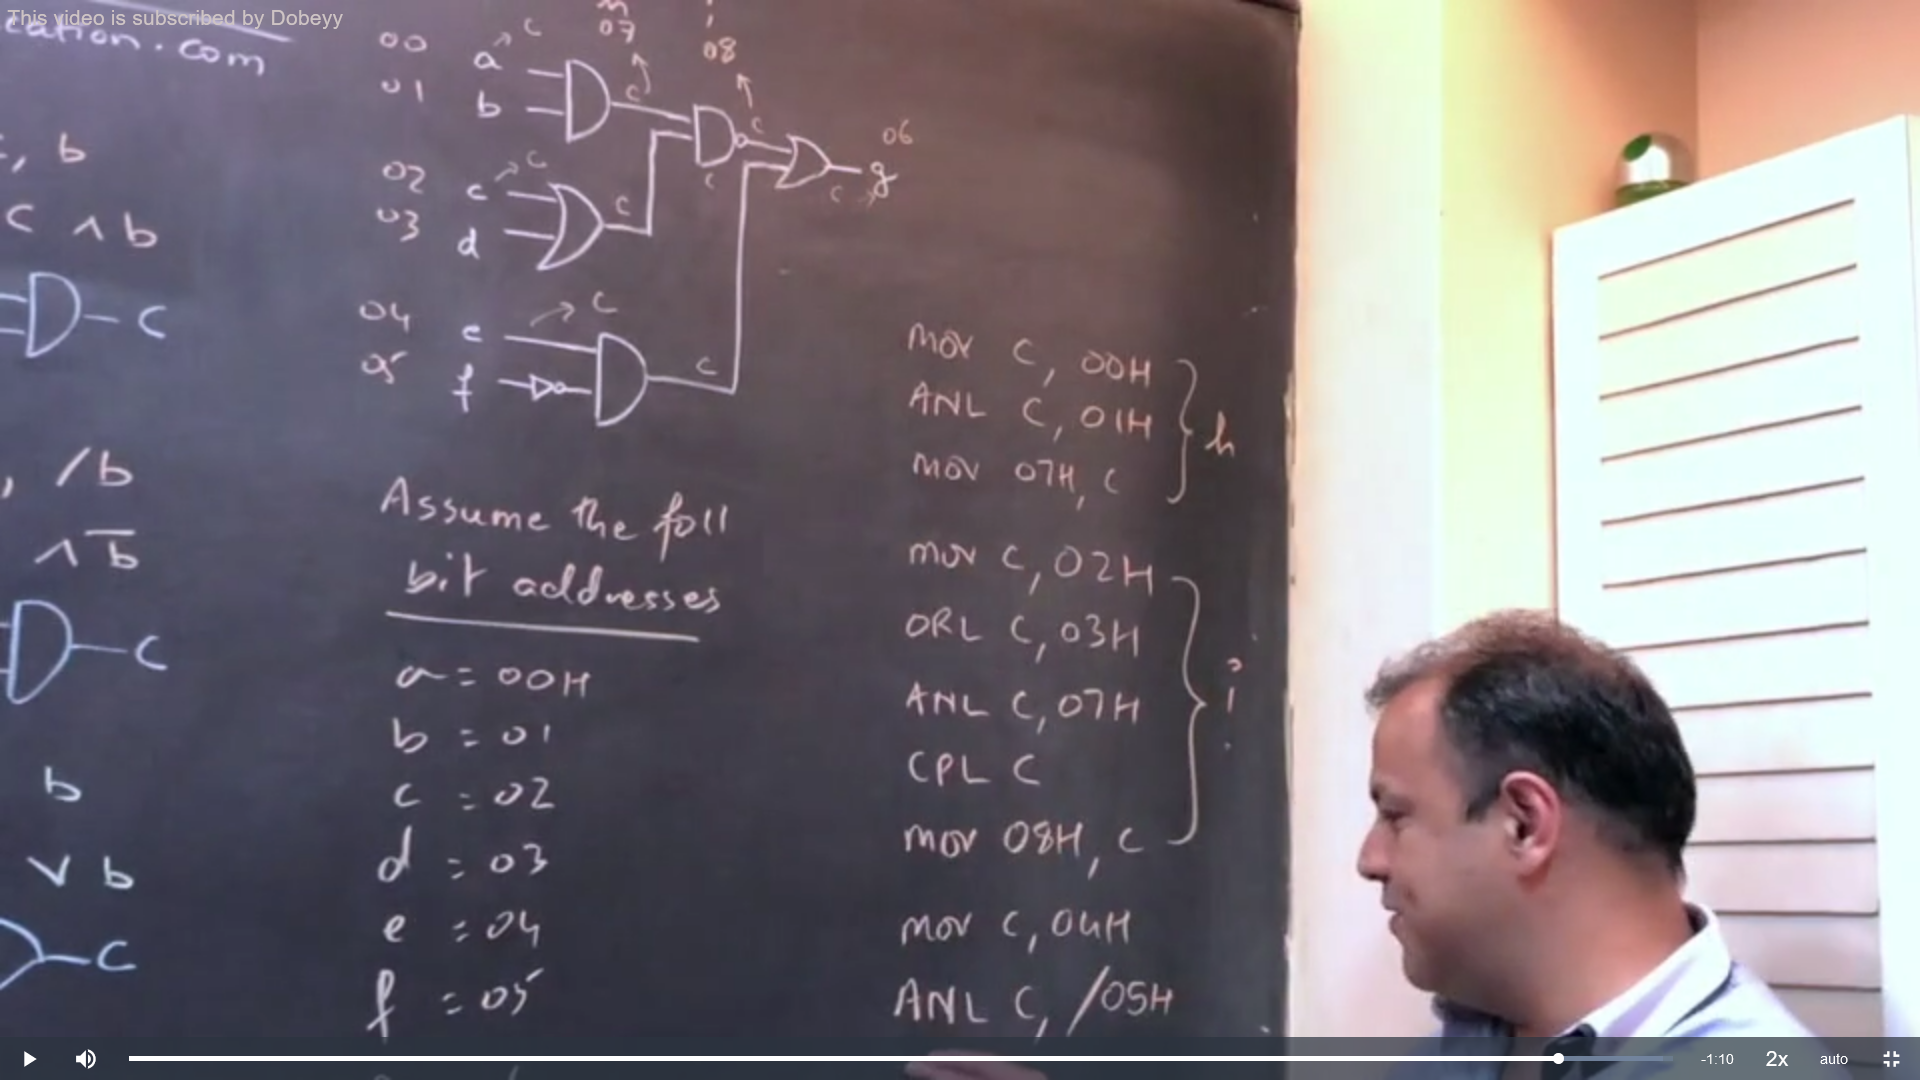 This video is subscribed by Dobeyy
cation.com
, b
C ∧ b
C
, /b
∧ b̅
C
b
∨ b
C
00 a → C
01 b
C
07
08
C
06
02 c → C
03 d
C
C
C → g
04 e → C
05 f
C
Assume the foll
bit addresses
a = 00H
b = 01
c = 02
d = 03
e = 04
f = 05
MOV C, 00H
ANL C, 01H
MOV 07H, C
h
MOV C, 02H
ORL C, 03H
ANL C, 07H
CPL C
MOV 08H, C
i
MOV C, 04H
ANL C, /05H
-1:10
2x
auto